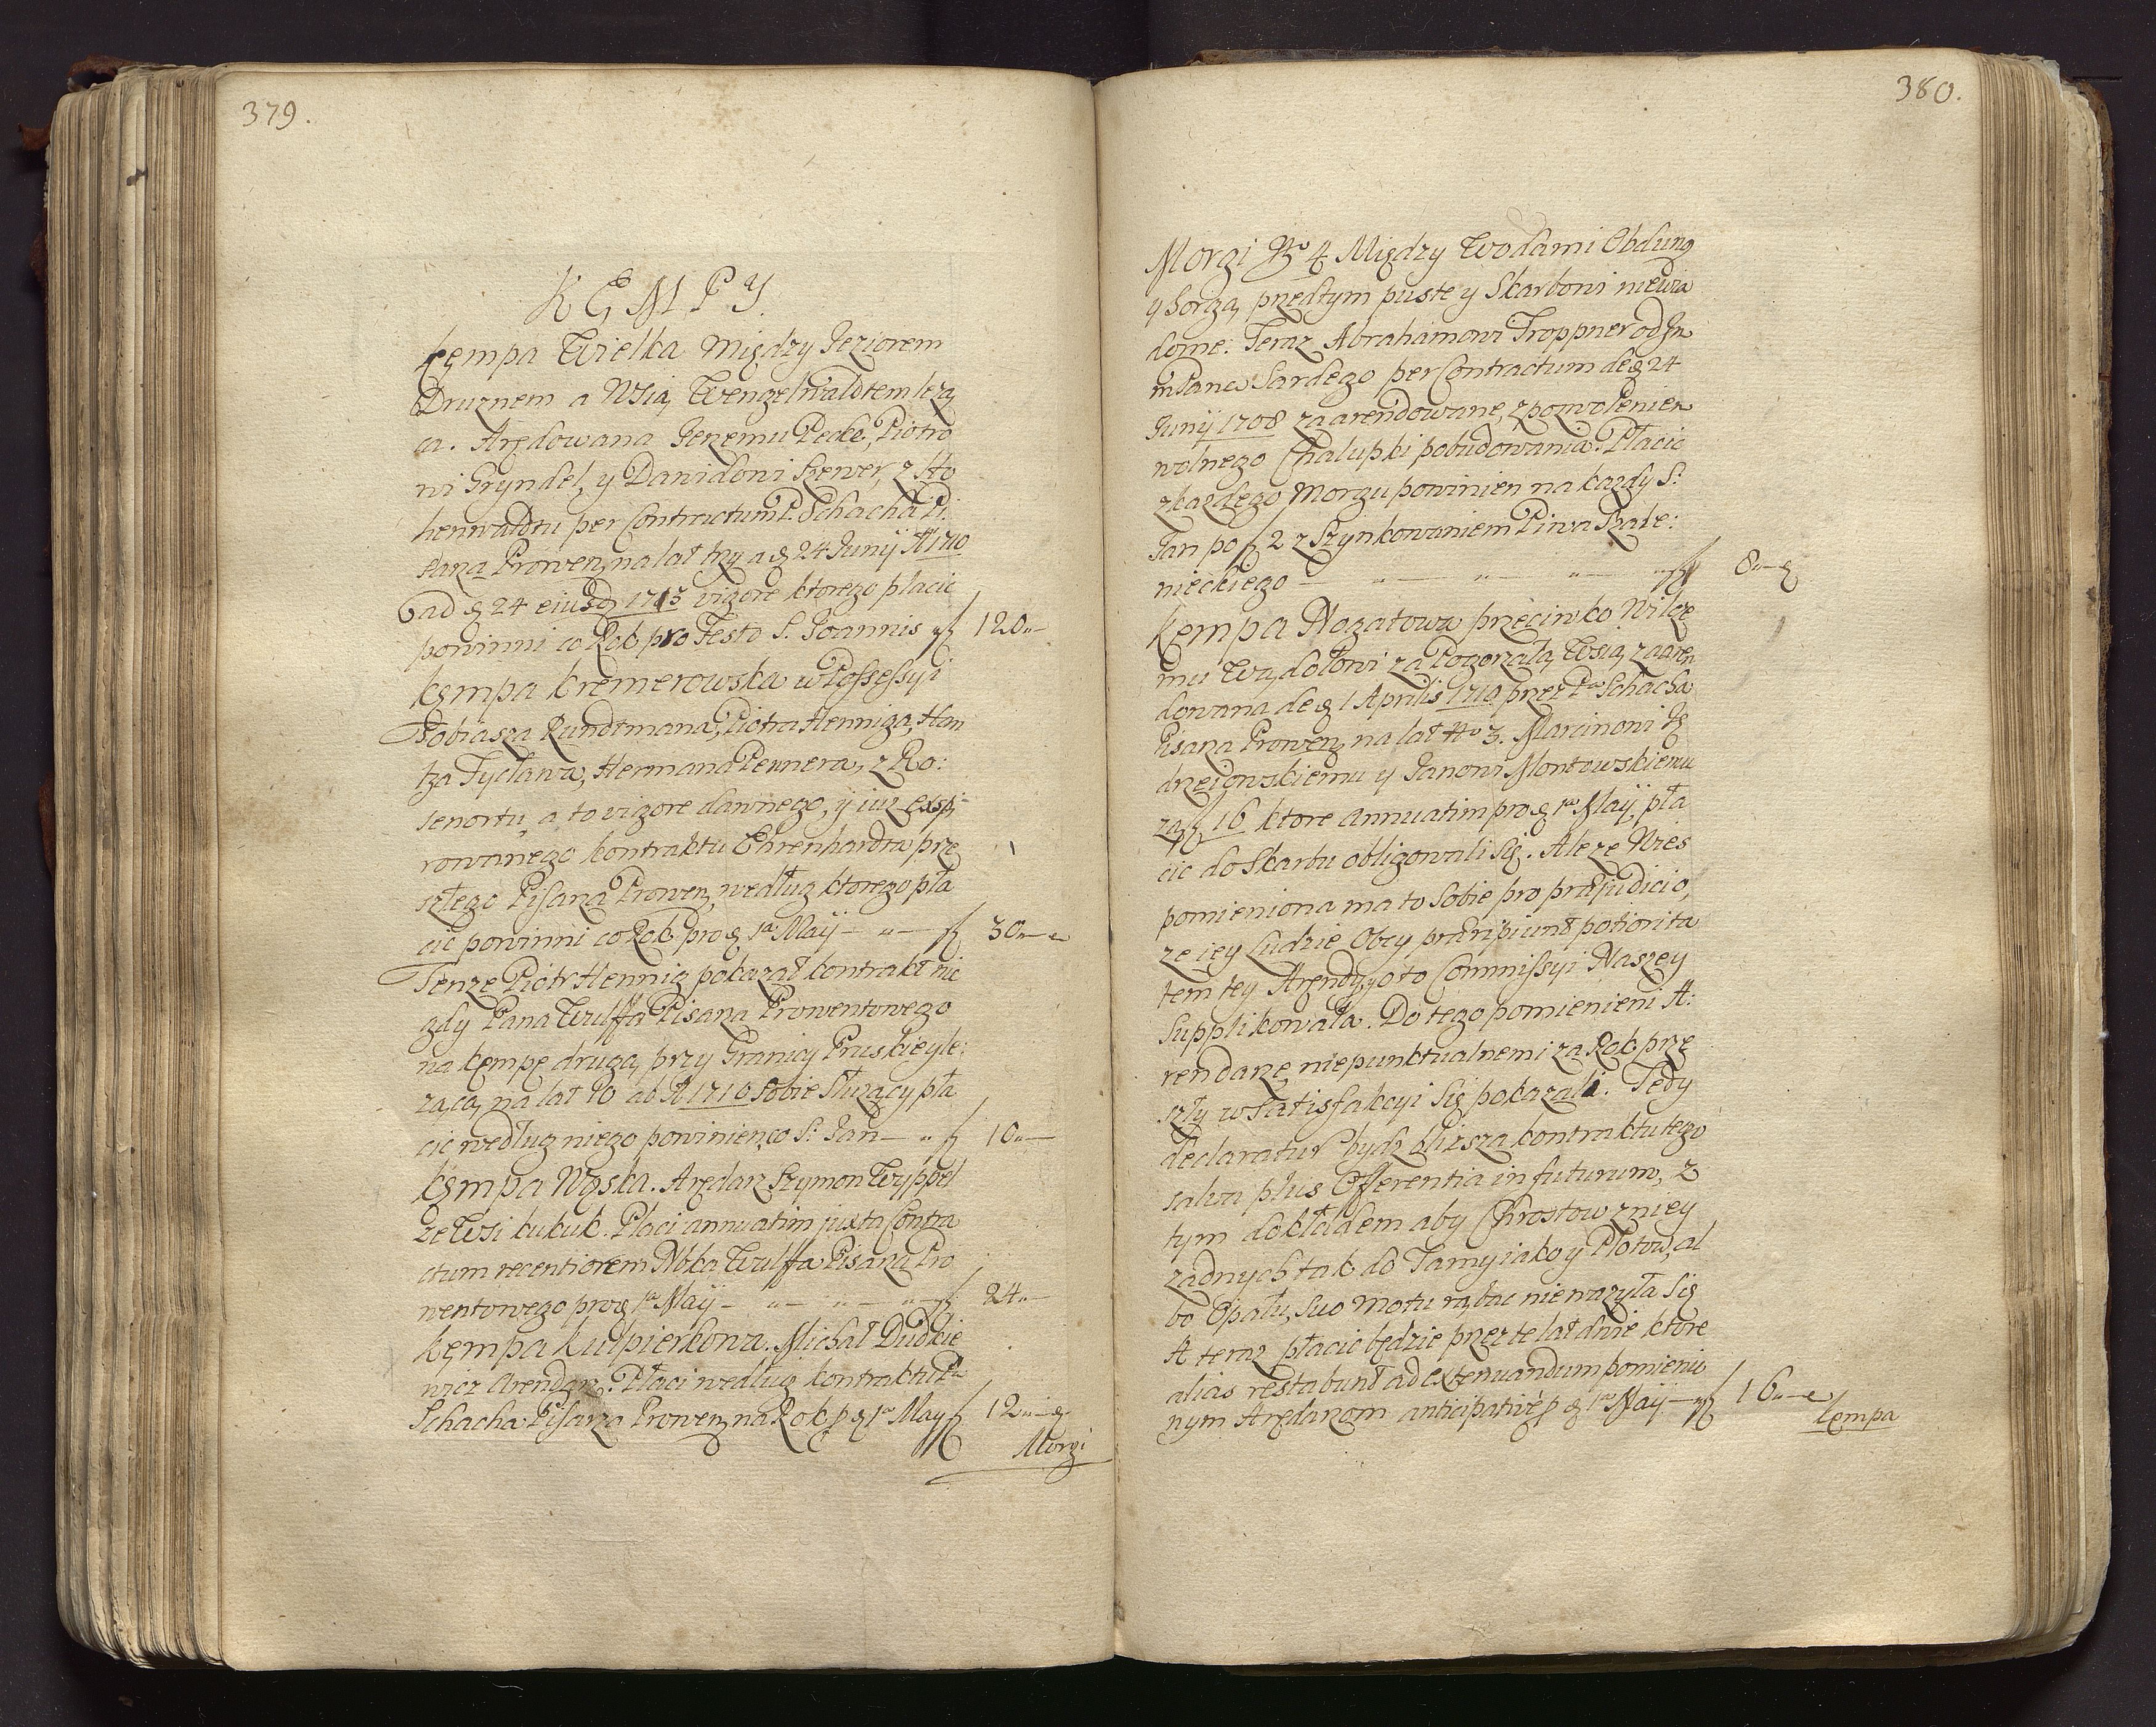 379.
KĘMPY.
Kęmpa Wielka Między Jeziorem
Druznem a Wsią Wengelwaldtem leżą
ca. Arędowana Jerzemu Pecke, Piotro
wi Gryndel, y Dawidowi Szewer, z Ho
henwaldtu per Contractum P. Schacha Pi
sarza Prowen. na lat trzy a d. 24 Junij Ao 1710
ad d. 24 eiusd. 1713 vigore ktorego płacic
powinni co Rok pro Festo S. Joannis f 120
Kęmpa Kremerowska w Possessyi
Tobiasza Rundtmana, Piotra Henniga, Han
tza Tycława, Hermana Pennera, z Ro:
senortu, a to vigore dawnego, ÿ iuz exspi
rowanego kontraktu Ehrenhardta prze
szłego Pisarza Prowen. według ktorego pła
cic powinni co Rok pro d. 1a Maÿ f 30
Tenze Piotr Hennig pokazał kontrakt nie
gdy Pana Wulffa Pisarza Prowentowego
na kempę drugą przy Granicy Pruskiey le:
zącą na lat 10 ab Ao 1710 sobie słuzący pła
cic według niego powinien co S: Jan f 10
Kęmpa Wąska. Arędarz Szymon Wyppel
ze Wsi kukuk. Płaci annuatim juxta Contra
ctum recentiorem Wulffa Pisarza Pro
wentowego pro d. 1a Maÿ f 24
Kęmpa Kulpierkowa. Michał Dudkie
wicz Arendarz. Płaci według kontraktu Pa
Schacha Pisarza Prowen. na Rok p d 1a May f 12
Morgi
380.
Morgi No 4 Między Wodami Obdung
y Sorgą przedtym puste y Skarbowi niewia
dome. Teraz Abrahamowi Troppner od
Pana Sardego per Contractum de d 24
Junÿ 1708 zaarendowane, z pozwoleniem
wolnego Chałupki pobudowania. Płacic
z kazdego Morgu powinien na kazdy S:
Jan po f 2 z Szynkowaniem Piwa Szale:
nieckiego f 8
Kęmpa Nogatowa przeciwko Wilcze
mu Wądołowi za Pogorzałą Wsią zaaren
dowana de d 1 Aprilis 1710 przez Pa Schacha
Pisarza Prowen. na lat No 3. Marcinowi Ję
drzeiowskiemu y Janowi Montowskiemu
za f 16 ktore annuatim pro d 1a Maÿ pła
cic do Skarbu obligowali się. Ale ze Wies
pomieniona ma to sobie pro præjudicio,
ze iey Ludzie Obcy præripiunt potiorita
tem tey Arendy, y o to Commissyi Naszey
supplikowała. Do tego pomienieni A:
rendarze niepunktualnemi za Rok prze
szły w satisfakcyi się pokazali. Tedy
declaratur bydz blizsza kontraktu tego
salva plus Offerentia in futurum, z
tym dokładem aby Chrostow z niey
zadnych tak do Tamy iako y Płotow, al
bo Opału, suo motu rąbac niewazyła się
A teraz płacic będzie przez te lat dwie ktore
alias restabunt ad extenuandum pomienio
nym Arędarzom anticipativè p d 1a Maÿ f 16
Kempa